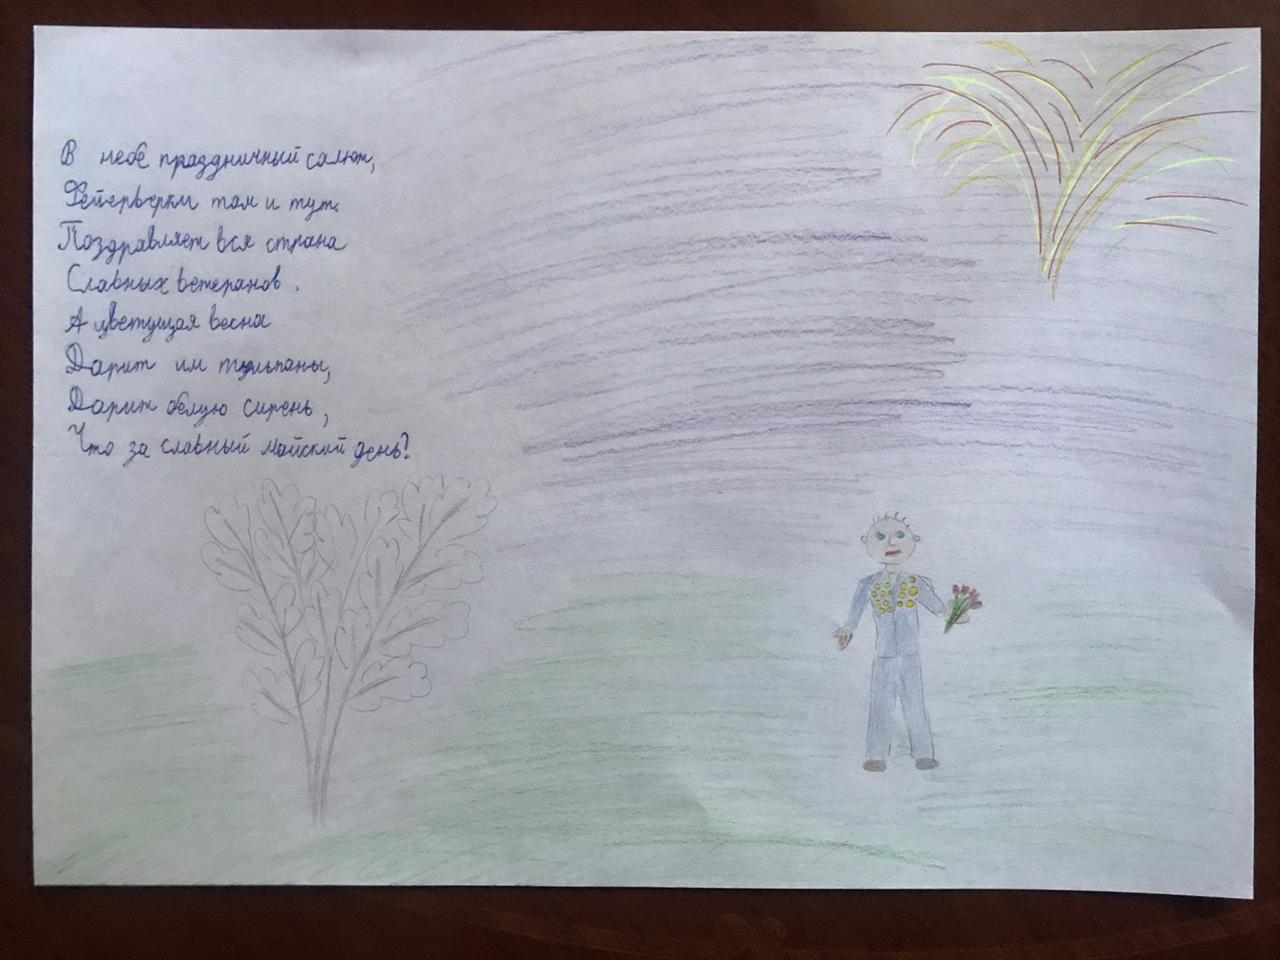 В небе праздничный салют,
Фейерверки там и тут.
Поздравляет вся страна
Славных ветеранов.
А цветущая весна
Дарит им тюльпаны,
Дарит белую сирень,
Что за славный майский день?